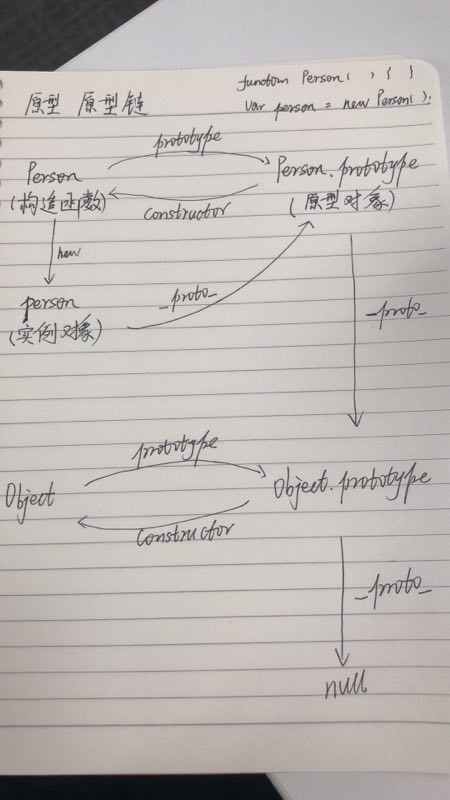 function Person( ) { }
原型 原型链
var person = new Person( );
prototype
Person
Person.prototype
(构造函数)
constructor
(原型对象)
new
person
_proto_
(实例对象)
_proto_
prototype
Object
Object.prototype
constructor
_proto_
null